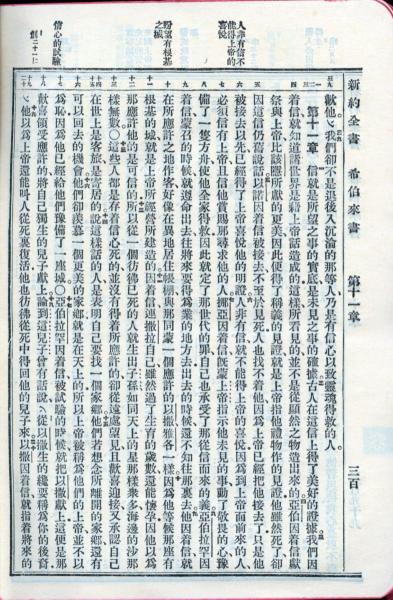 新約全書 希伯來書 第十一章 三百
人非有信不
能得上帝的
喜悅
盼望有根基
之城
信心的試驗
獻他、我們卻不是退後入沉淪的那等人乃是有信心以致靈魂得救的人。
第十一章 信就是所望之事的實底是未見之事的確據古人在這信上得了美好的證據我們因
着信就知道諸世界是藉上帝話造成的這樣所看見的並不是從顯然之物造出來的亞伯因着信獻
祭與上帝比該隱所獻的更美因此便得了稱義的見證就是上帝指他禮物作的見證他雖然死了卻
因這信仍舊說話以諾因着信被接去不至於見死人也找不着他因爲上帝已經把他接去了只是他
被接去以先已經得了上帝喜悅他的明證人非有信就不能得上帝的喜悅因爲到上帝面前來的人
必須信有上帝且信他賞賜那尋求他的人挪亞因着信旣蒙上帝指示他未見的事動了敬畏的心豫
備了一隻方舟使他全家得救因此就定了那世代的罪自己也承受了那從信而來的義亞伯拉罕因
着信蒙召的時候就遵命出去往將來要得爲業的地方去出去的時候還不知往那裏去他因着信就
在所應許之地作客好像在異地居住帳棚與那同蒙一個應許的以撒雅各一樣因爲他等候那座有
根基的城就是上帝所經營所建造的因着信連撒拉自己雖然過了生育的歲數還能懷孕因他以爲
那應許他的是可信的所以從一個彷彿已死的人就生出子孫如同天上的星那樣衆多海邊的沙那
樣無數○這些人都是存着信心死的並沒有得着所應許的卻從遠處望見且歡喜迎接又承認自己
在世上是客旅是寄居的說這樣話的人是表明自己要找一個家鄉他們若想念所離開的家鄉還有
可以回去的機會他們卻羨慕一個更美的家鄉就是在天上的所以上帝被稱爲他們的上帝並不以
爲恥因爲他已經給他們豫備了一座城○亞伯拉罕因着信被試驗的時候就把以撒獻上這便是那
歡喜領受應許的將自己獨生的兒子獻上論到這兒子曾有話說從以撒生的纔要稱爲你的後裔
他以爲上帝還能叫人從死裏復活他也彷彿從死中得回他的兒子來以撒因着信就指着將來的